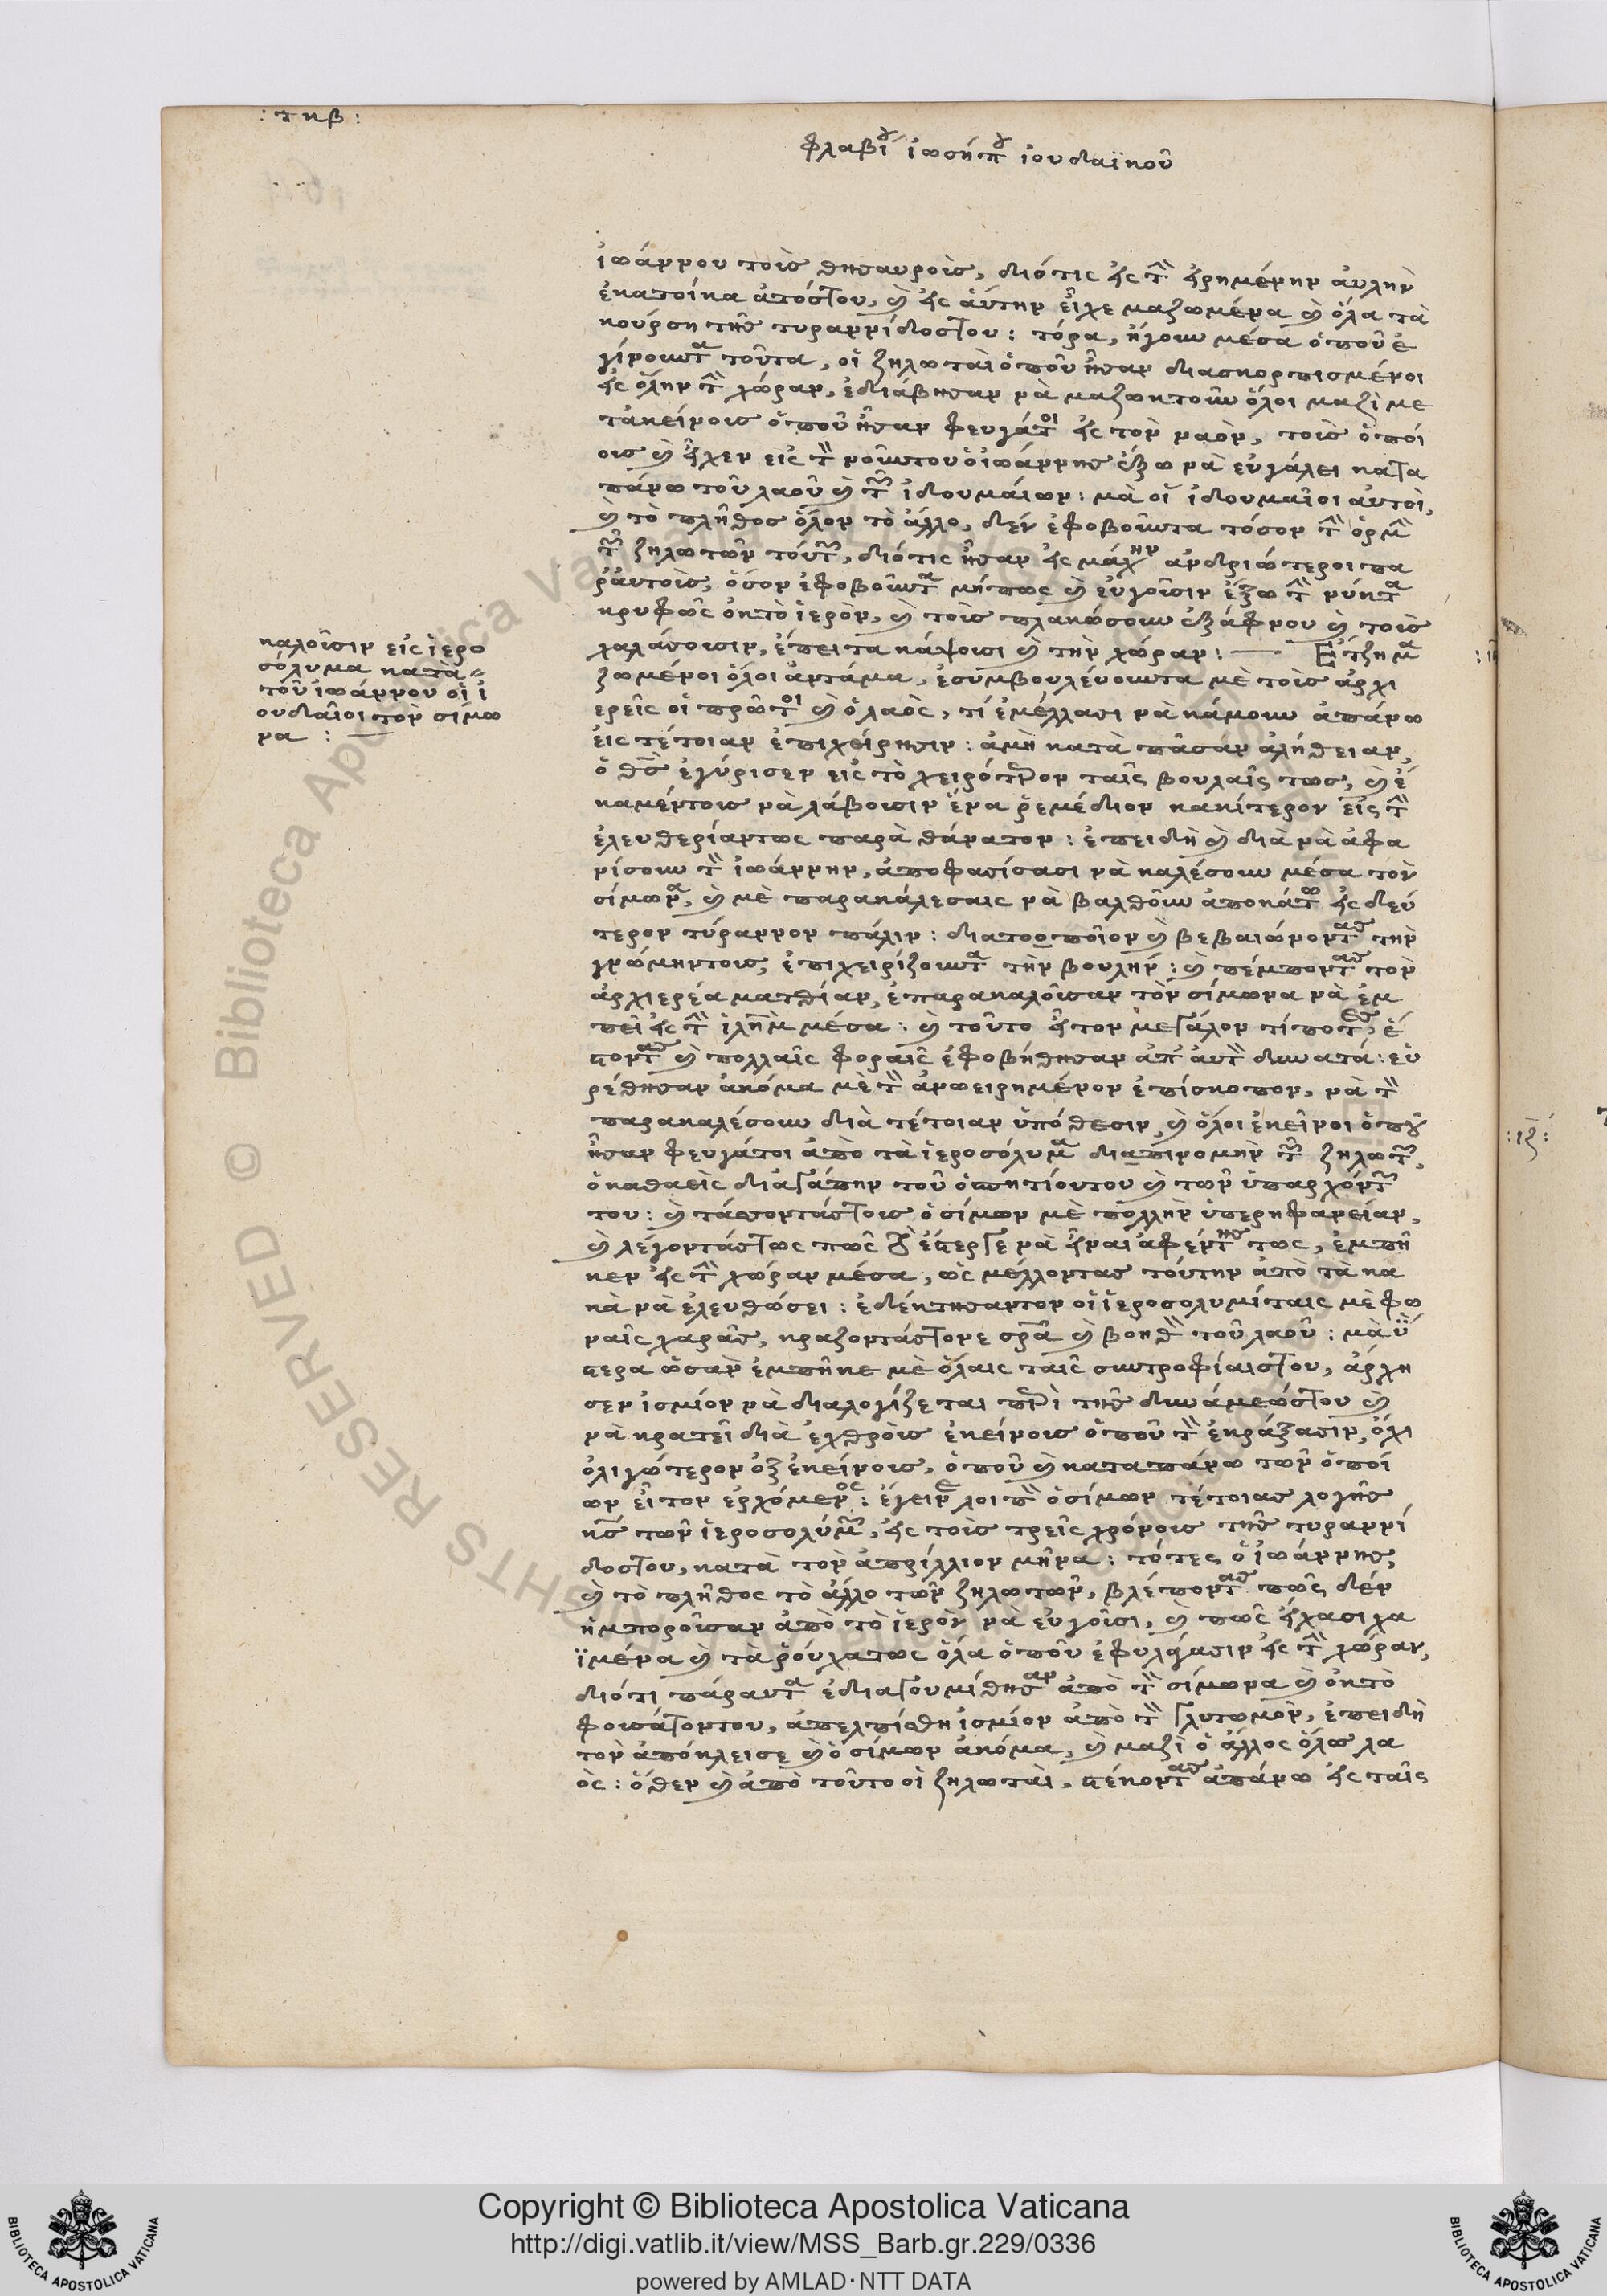 : τκβ :
φλαβίου ἰωσήπου ἰουδαϊκοῦ
ἰωάννου τοὺς θησαυροὺς, διότις εἰς τὴν εἰρημένην αὐλὴν
ἐκατοίκα ἀτόστου, καὶ εἰς αὐτην εἶχε μαζωμένα καὶ ὅλα τὰ
κούρση τῆς τυραννίδοστου : τόρα, ἤγουν μέσα ὁποῦ ἐ
γίνουντα τοῦτα, οἱ ζηλωταὶ ὁποῦ ἦσαν διασκορπισμένοι
εἰς ὅλην τὴν χώραν, ἐδιάβησαν νὰ μαζωκτοῦν ὅλοι μαζὶ με
τἀκείνους ὁποῦ ἦσαν φευγάτοι εἰς τὸν ναὸν, τοὺς ὁποί
ους καὶ εἶχεν εἰς τὸν νοῦντου ὁ ἰωάννης ἔξω νὰ εὐγάλει κατα
πάνω τοῦ λαοῦ καὶ τῶν ἰδουμάιων : μὰ οἱ ἰδουμαῖοι αὐτοὶ,
καὶ τὸ πλῆθος ὅλον τὸ ἄλλο, δὲν ἐφοβοῦντα τόσον τὴν ὁρμὴν
τῶν ζηλωτῶν τούτων, διότις ἦσαν εἰς μάχην ἀνδριώτεροι πα
ρ᾽ἀυτοὺς, ὅσον ἐφοβοῦντα μήπως καὶ εὐγοῦσιν ἔξω τὴν νύκτα
κρυφῶς ὀκτὸ ἱερὸν, καὶ τοὺς πλακώσουν ἐξάφνου καὶ τοὺς
χαλάσουσιν, ἔπειτα κάψουσι καὶ τὴν χώραν : — Εἴτζη μα
ζωμένοι ὅλοι ἀντάμα, ἐσυμβουλέυουντα μὲ τοὺς ἀρχι
ερεῖς οἱ πρῶτοι καὶ ὁ λαὸς, τί ἐμέλλασι νὰ κάμουν ἀπάνω
εἰς τέτοιαν ἐπιχείρησιν : ἀμὴ κατὰ πᾶσαν ἀλήθειαν,
ὁ θεὸς ἐγύρισεν εἰς τὸ χειρότερον ταῖς βουλαῖς τως, καὶ ἔ
καμέντους νὰ λάβουσιν ἕνα ῥεμέδιον κακίτερον εἰς τὴν
ἐλευθερίαντως παρὰ θάνατον : ἐπειδὴ καὶ διὰ νὰ ἀφα
νίσουν τὸν ἰωάννην, ἀποφασίσασι νὰ καλέσουν μέσα τὸν
σίμωνα, καὶ μὲ παρακάλεσαις νὰ βαλθοῦν ἀποκάτω εἰς δεύ
τερον τύραννον πάλιν : διατοοποῖον καὶ βεβαιώνοντας τὴν
γνώμηντους, ἐπιχειρίζουντα τὴν βουλὴν : καὶ πέμποντας τὸν
ἀρχιερέα ματθίαν, ἐπαρακαλοῦσαν τὸν σίμωνα νὰ ἐμ
πεῖ εἰς τὴν ἱλὴμ μέσα : καὶ τοῦτο ἦτον μεγάλον τίποτες, ἔ
σοντας καὶ πολλαῖς φοραῖς ἐφοβήθησαν ἀπ᾽ ἀυτὸν δυνατά : εὑ
ρέθησαν ἀκόμα μὲ τὸν ἀνωειρημένον ἐπίσκοπον, νὰ τὸν
παρακαλέσουν διὰ τέτοιαν ὑπόθεσιν, καὶ ὅλοι ἐκεῖνοι ὁποῦ
ἦσαν φευγάτοι ἀπὸ τὰ ἱεροσόλυμα διαπινομὴν τῶν ζηλωτῶν,
ὁ καθαεὶς διαγάπην τοῦ ὁσπητίουτου καὶ τῶν ὑπαρχόντων
του : καὶ τάσσοντάστους ὁ σίμων μὲ πολλὴν ὑπερηφανείαν,
καὶ λέγοντάστως πῶς οὐ ἔστερξε νὰ εἶναι ἀφέντης τως, ἐμπῆ
κεν εἰς τὴν χώραν μέσα, ὡς μέλλοντας τούτην ἀπὸ τὰ κα
κὰ νὰ ἐλευθώσει : ἐδέκτησαντον οἱ ἱεροσολυμίταις μὲ φω
ναῖς χαρᾶς, κραζοντάστονε σωτῆρα καὶ βοηθὸν τοῦ λαοῦ : μὰ ὕ
στερα ὡσὰν ἐμπῆκε μὲ ὅλαις ταῖς συντροφίαιστου, ἄρχη
σεν ἰσμίον νὰ διαλογίζεται περὶ τῆς δυνάμεώστου καὶ
νὰ κρατεῖ διὰ ἐχθροὺς ἐκείνους ὁποῦ τὸν ἐκράξασιν, ὄχι
ὀλιγώτερον ὀξ ἐκείνους, ὁποῦ καὶ καταπάνω τῶν ὁποί
ων εἶτον ἐρχόμενος : ἔγεινε λοιπὸν ὁ σίμων τέτοιας λογῆς
κὺς τῶν ἱεροσολύμων, εἰς τοὺς τρεῖς χρόνους τῆς τυραννί
δοστου, κατὰ τὸν ἀπρίλλιον μῆνα : τότες ὁ ἰωάννης,
καὶ τὸ πλῆθος τὸ ἄλλο τῶν ζηλωτῶν, βλέποντας πῶς δὲν
ἠμποροῦσαν ἀπὸ τὸ ἱερὸν νὰ εὐγοῦσι, καὶ πῶς εἴχασι χα
ϊμένα καὶ τὰ ῥούχατως ὅλα ὁποῦ ἐφυλάγασιν εἰς τὴν χώραν,
διότι πάραυτα ἐδιαγουμίθησαν ἀπὸ τὸν σίμωνα καὶ ὀκτὸ
φουσάτοντου, ἀπελπίσθη ἰσμίον ἀπὸ τὸν γλυτωμὸν, ἐπειδὴ
τὸν ἀπόκλεισε καὶ ὁ σίμων ἀκόμα, καὶ μαζὶ ὁ ἄλλος ὅλος λα
ὸς : ὅθεν καὶ ἀπὸ τοῦτο οἱ ζηλωταὶ, στέκοντας ἀπάνω εἰς ταῖς
καλοῦσιν εἰς ἱερο
σόλυμα κατὰ
τοῦ ἰωάννου οἱ ἰ
ουδαῖοι τὸν σίμω
να : —
: ιζ :
Copyright © Biblioteca Apostolica Vaticana
http://digi.vatlib.it/view/MSS_Barb.gr.229/0336
powered by AMLAD·NTT DATA